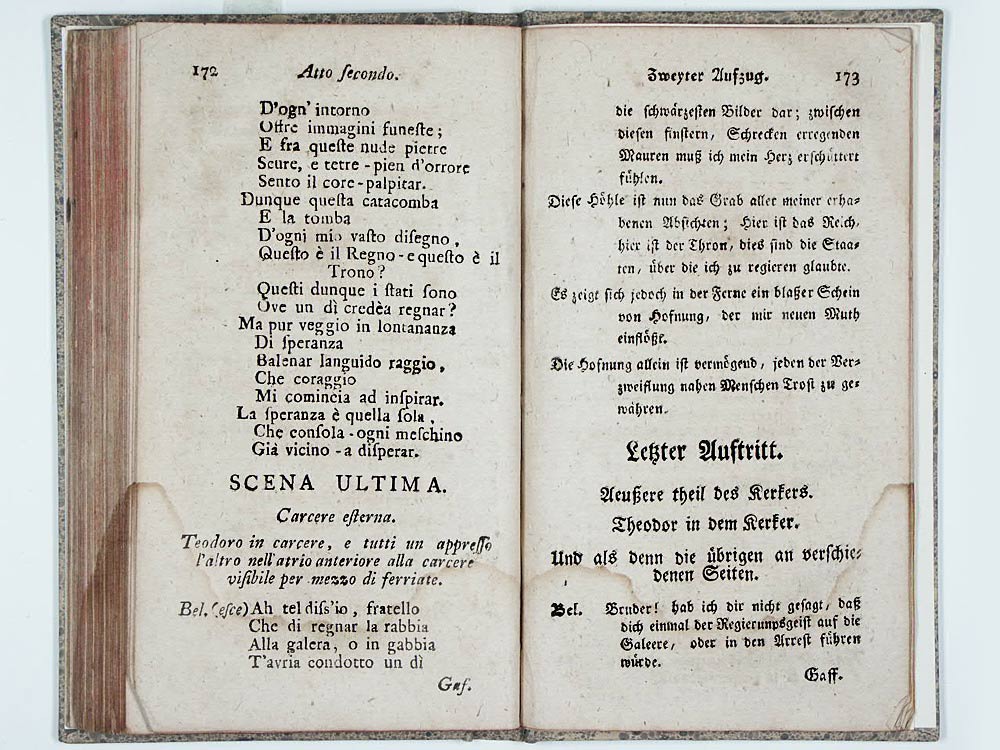 172 Atto ſecondo.
D'ogn' intorno
Offre immagini funeſte;
E fra queſte nude pietre
Scure, e tetre - pien d'orrore
Sento il core - palpitar.
Dunque queſta catacomba
E la tomba
D'ogni mio vaſto diſegno,
Queſto è il Regno - e queſto è il
Trono?
Queſti dunque i ſtati ſono
Ove un dì credèa regnar?
Ma pur veggio in lontananza
Di ſperanza
Balenar languido raggio,
Che coraggio
Mi comincia ad inſpirar.
La ſperanza è quella ſola,
Che conſola - ogni meſchino
Già vicino - a diſperar.
SCENA ULTIMA.
Carcere eſterna.
Teodoro in carcere, e tutti un appreſſo
l'altro nell'atrio anteriore alla carcere
viſibile per mezzo di ferriate.
Bel. (eſce) Ah tel diſs'io, fratello
Che di regnar la rabbia
Alla galera, o in gabbia
T'avria condotto un dì
Gaf.
Zweyter Aufzug. 173
die ſchwärzeſten Bilder dar; zwiſchen
dieſen finſtern, Schrecken erregenden
Mauren muß ich mein Herz erſchüttert
fühlen.
Dieſe Höhle iſt nun das Grab aller meiner erha-
benen Abſichten; Hier iſt das Reich,
hier iſt der Thron, dies ſind die Staa-
ten, über die ich zu regieren glaubte.
Es zeigt ſich jedoch in der Ferne ein blaßer Schein
von Hofnung, der mir neuen Muth
einflößt.
Die Hofnung allein iſt vermögend, jeden der Ver-
zweiflung nahen Menſchen Troſt zu ge-
währen.
Letzter Auftritt.
Aeußere theil des Kerkers.
Theodor in dem Kerker.
Und als denn die übrigen an verſchie-
denen Seiten.
Bel. Bruder! hab ich dir nicht geſagt, daß
dich einmal der Regierunpsgeiſt auf die
Galeere, oder in den Arreſt führen
würde.
Gaff.